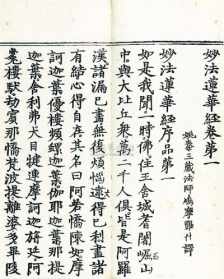 妙法蓮華經卷第一
姚秦三藏法師鳩摩羅什譯
妙法蓮華經序品第一
如是我聞一時佛住王舍城耆闍崛山
中與大比丘衆萬二千人俱皆是阿羅
漢諸漏已盡無復煩惱逮得己利盡諸
有結心得自在其名曰阿若憍陳如摩
訶迦葉優樓頻螺迦葉伽耶迦葉那提
迦葉舍利弗大目揵連摩訶迦旃延阿
㝹樓馱劫賓那憍梵波提離婆多畢陵